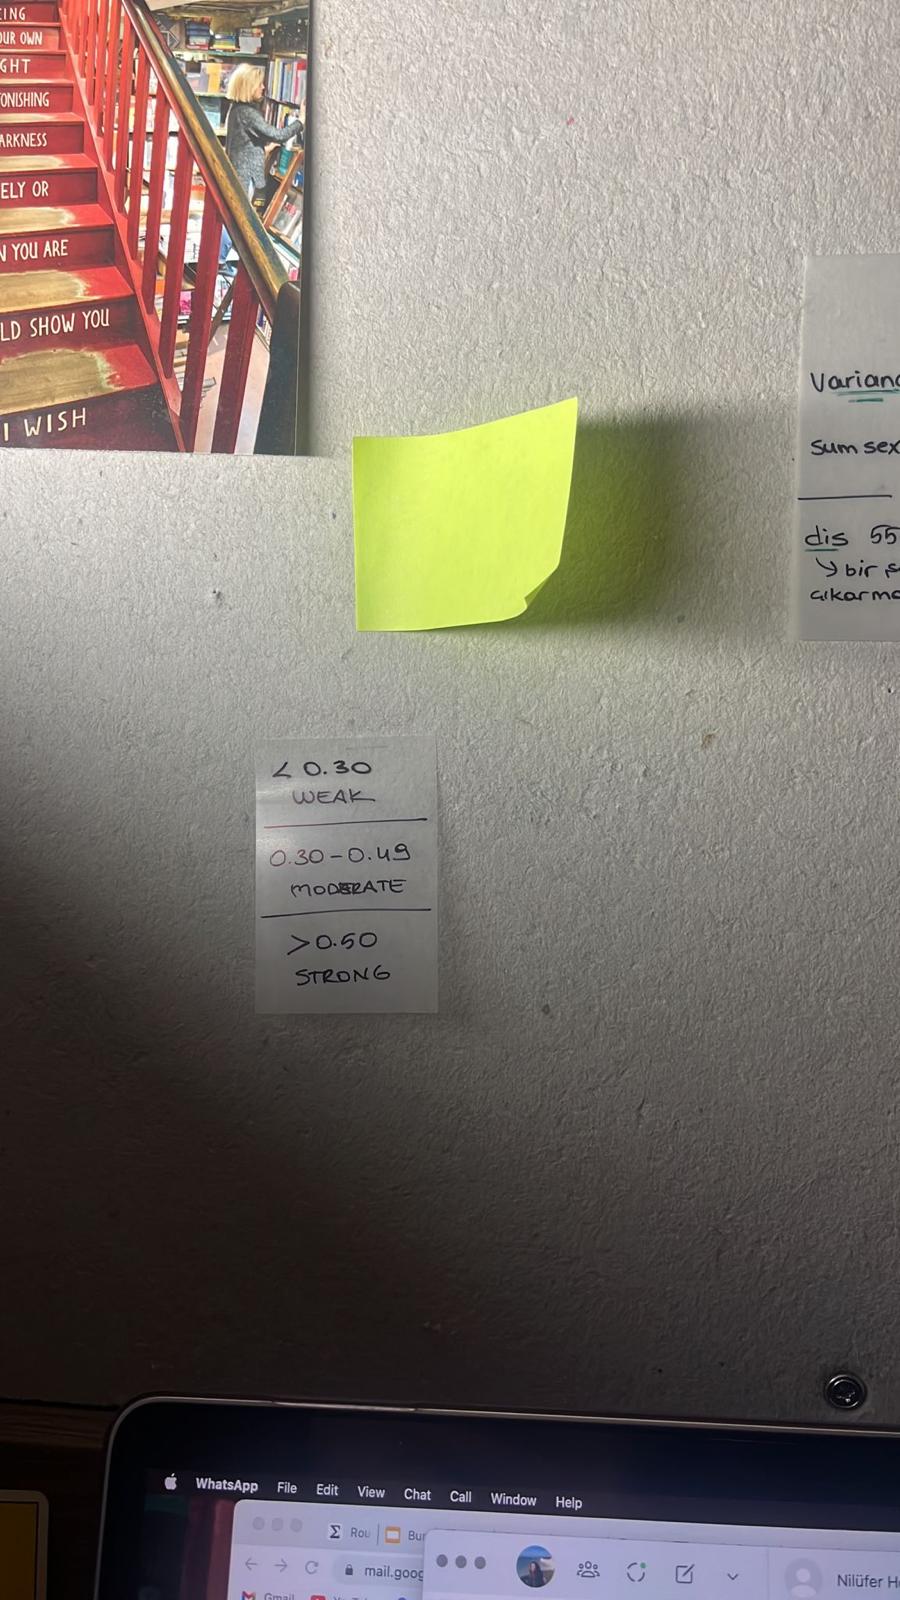 EING
OUR OWN
GHT
TONISHING
ARKNESS
ELY OR
N YOU ARE
LD SHOW YOU
I WISH
Varianc
sum sex
dis 55
↘ bir
çıkarma
< 0.30
WEAK
0.30-0.49
MODERATE
>0.50
STRONG
WhatsApp File Edit View Chat Call Window Help
Σ Rou Bur
mail.goog
Gmail
Nilüfer H